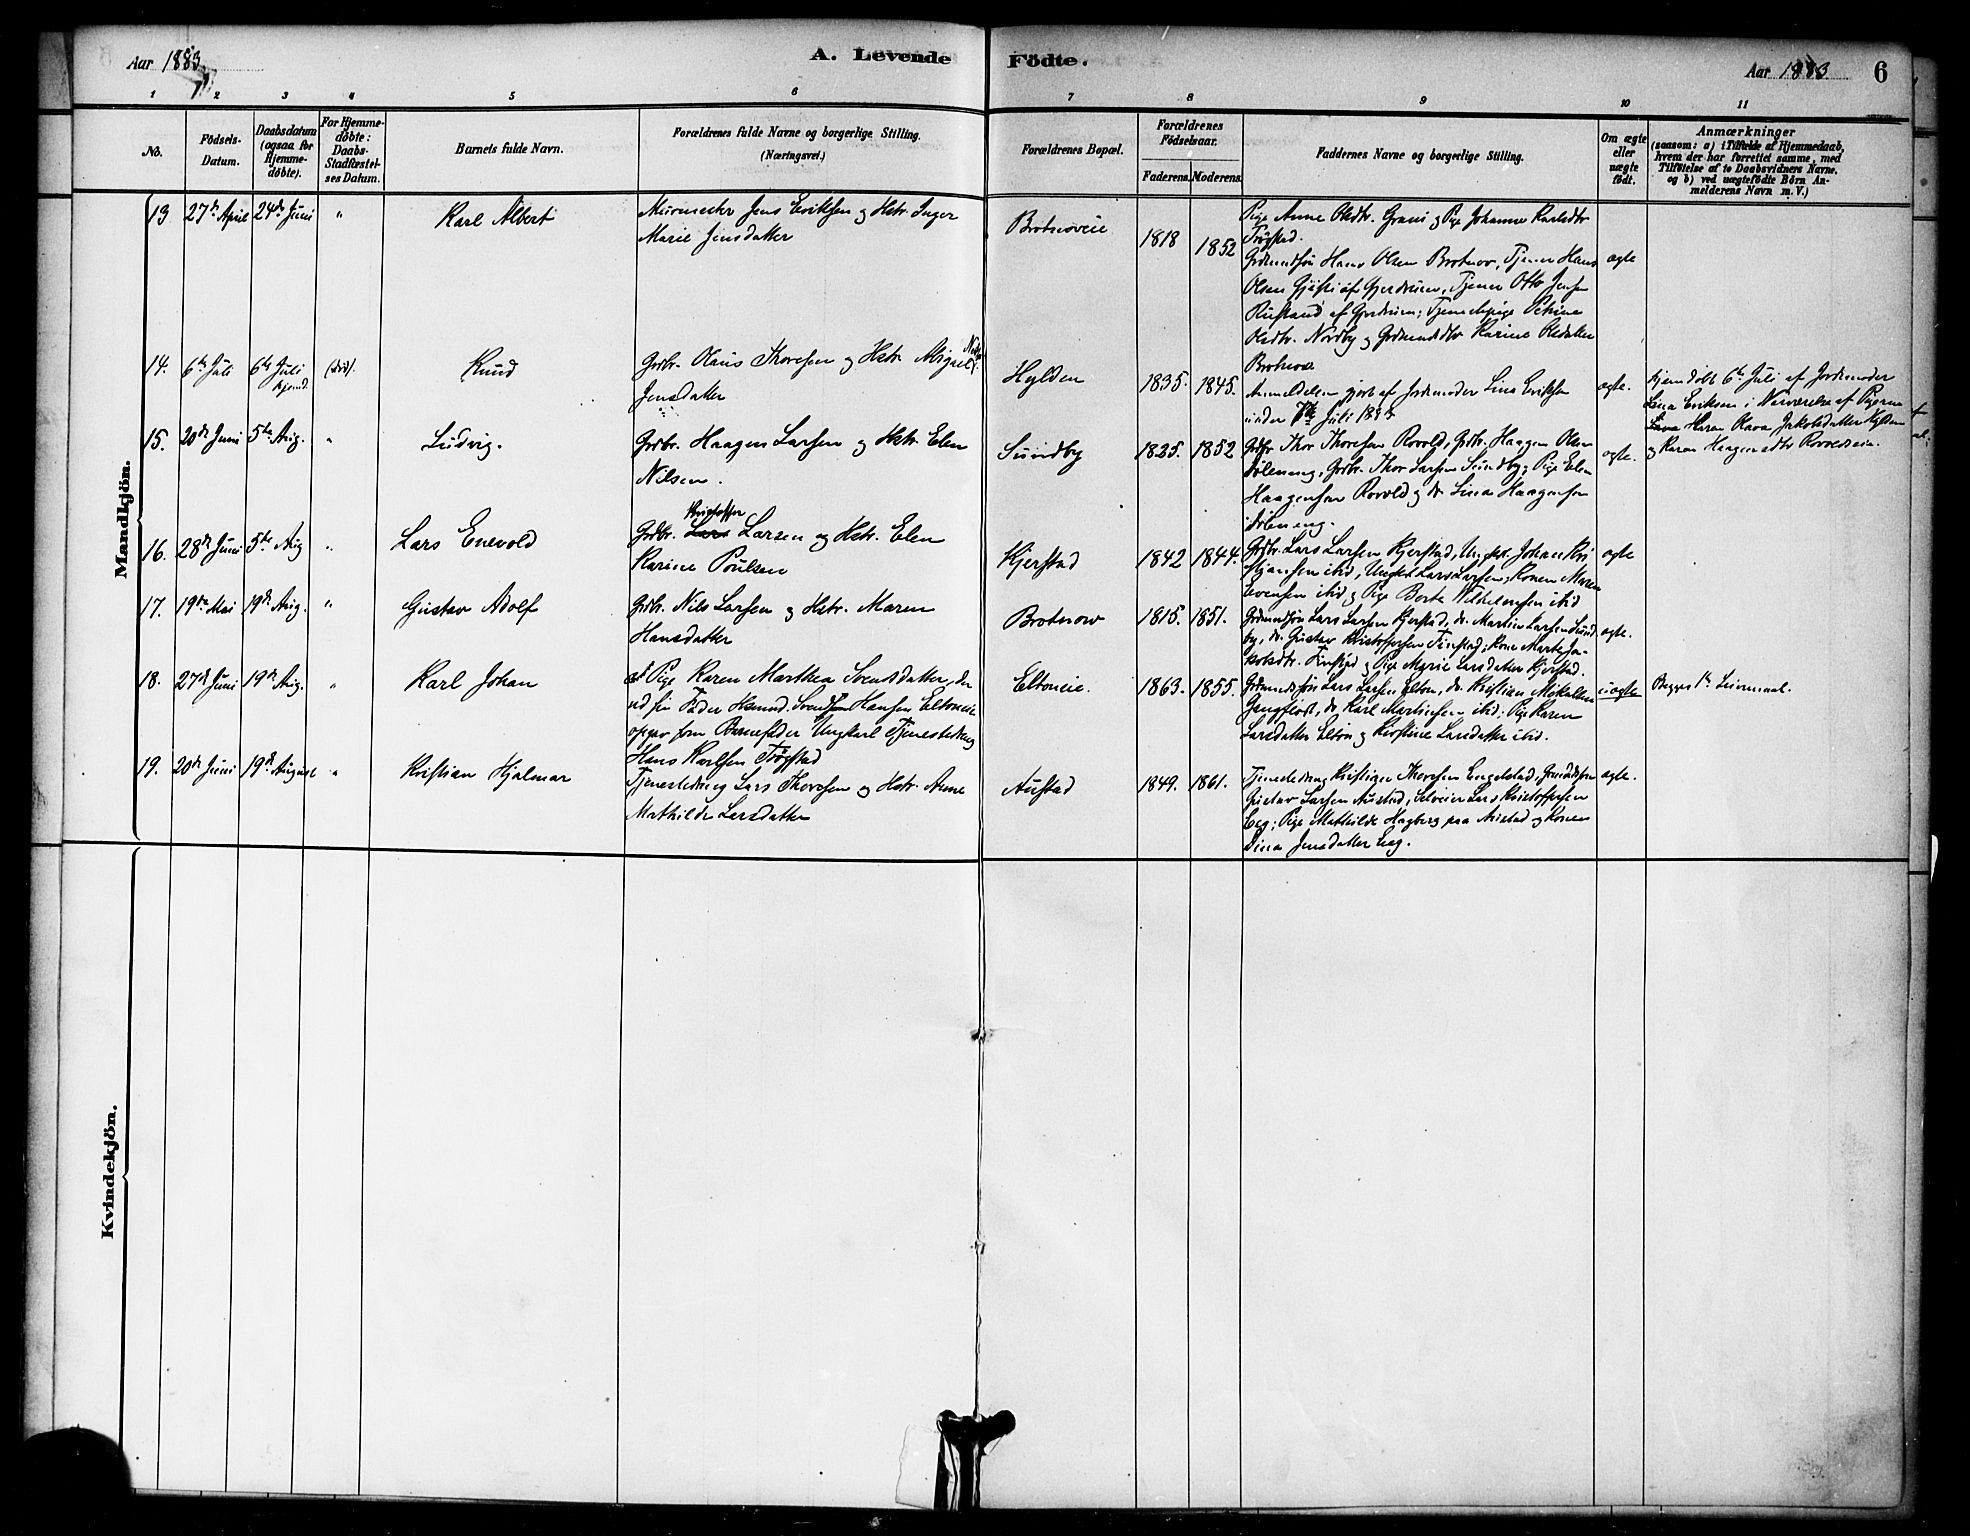 Aar 1883.
A. Levende Födte.
Aar 1883.
6
1 2 3 4 5 6 7 8 9 10 11
No.
Födsels-Datum.
Daabsdatum (ogsaa for Hjemme-döbte).
For Hjemme-döbte: Daabs-Stadfæstel-ses Datum.
Barnets fulde Navn.
Forældrenes fulde Navne og borgerlige Stilling.
(Næringsvei.)
Forældrenes Bopæl.
Forældrenes Födselsaar.
Faderens. Moderens.
Faddernes Navne og borgerlige Stilling.
Om ægte eller uægte födt.
Anmærkninger
(saasom: a) i Tilfælde af Hjemmedaab,
hvem der har forrettet samme, med
Tilföielse af to Daabsvidners Navne,
og b) ved uægtefödte Börn An-
melderens Navn m. V.)
Mandkjön.
13. 27de April 24de Juni " Karl Albert
Murmester Jens Eriksen og Hstr. Inger
Marie Jensdatter
Brotnoveie 1818 1852
Pige Anne Olsdtr. Grani og Pige Johanne Karlsdtr
Trøgstad.
Grdmandsøn Hans Olsen Brotnov, Tjener Hans
Olsen af Gjerdrum, Tjener Otto Jensen
Rustand af Gjerdrum; Tjenestepige Petrine
Olsdtr. Nordby og Grdmandsdtr Karine Olsdatter
Brotnov
ægte
14. 6te Juli 6te Juli hjemd. (død). Knud
Grdbr. Olaus Thoresen og Hstr. Abigael
Jensdatter
Hylden 1835. 1845.
Anmeldelsen gjort af Jordmoder Lina Eriksen
under 7de Juli 1883
ægte.
Hjemdøbt 6te Juli af Jordmoder
Lina Eriksen i Nærværelse af Pigerne
Karen Olava Jakobsdatter Hylden
og Karen Haagensdtr
15. 20de Juni 5te Aug. " Ludvig.
Grdbr. Haagen Larsen og Hstr. Elen
Nilsen.
Sundby 1825. 1852
Grdbr Thor Thoresen Rovold, Grdbr. Haagen Olsen
Døleneng, Grdbr. Thor Larsen Sundby; Pige Elen
Haagensen Rovold og do Lina Haagensen
Døleneng.
ægte.
16. 28de Juni 5te Aug " Lars Enevold
Kristoffer
Grdbr. Lars Larsen og Hstr. Elen
Karine Poulsen
Kjerstad 1842 1844.
Grdbr. Lars Larsen Kjerstad, Ungk. Johan Kri-
stjansen ibid, Ungk. Lars Larsen; Konen Maren
Svensen ibid og Pige Berte Wilhelmsen ibid
ægte
17. 19de Mai 19de Aug. " Gustav Adolf
Grdbr. Nils Larsen og Hstr. Maren
Hansdatter
Brotnow 1815. 1851.
Grdmandsøn Lars Larsen Kjerstad, do. Martin Larsen Sund-
by, do. Gustav Kristoffersen Finstad; Kone Marte Ja-
kobsdtr. Finstad og Pige Marie Larsdatter Kjerstad.
ægte.
18. 27de Juni 19de Aug. " Karl Johan
af Pige Karen Marthea Svendsdatter, der
ved sin Fader Husmd. Svend Hansen Eltoneie
opgav som Barnefader Ungkarl Tjenestedreng
Hans Karlsen Trøgstad
Eltoneie. 1863. 1855.
Grdmandsøn Lars Larsen Elton, do. Kristian Mikalsen
do. Karl Martinsen ibid; Pige Karen
Larsdatter Elton og Kirstine Larsdatter ibid.
uægte
Begges 1te Leiermaal.
19. 20de Juni 19de August " Kristian Hjalmar
Tjenestedreng Lars Thoresen og Hstr. Anne
Mathilde Larsdatter
Austad 1849. 1861.
Tjenestedreng Kristian Thoresen Engelstad, Grmandsøn
Gustav Larsen Austad, Selveier Lars Kristoffersen
Eeg; Pige Mathilde Hagberg paa Austad og Konen
Dina Jensdatter Eeg.
ægte.
Kvindekjön.